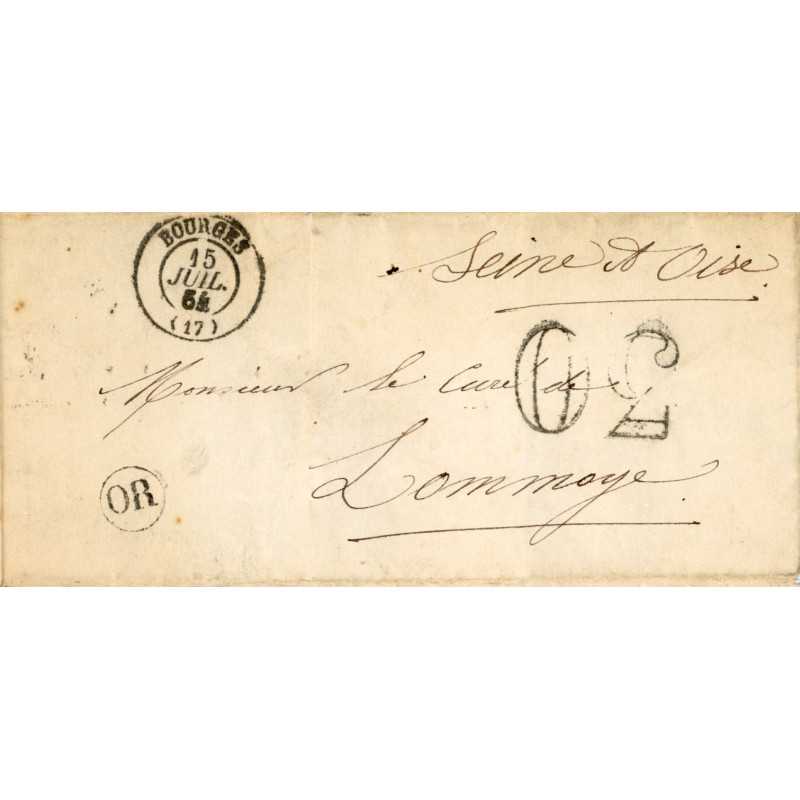 BOURGES
15
JUIL.
54
(17)
Seine et Oise
30
Monsieur le Curé de
OR
Lommoye